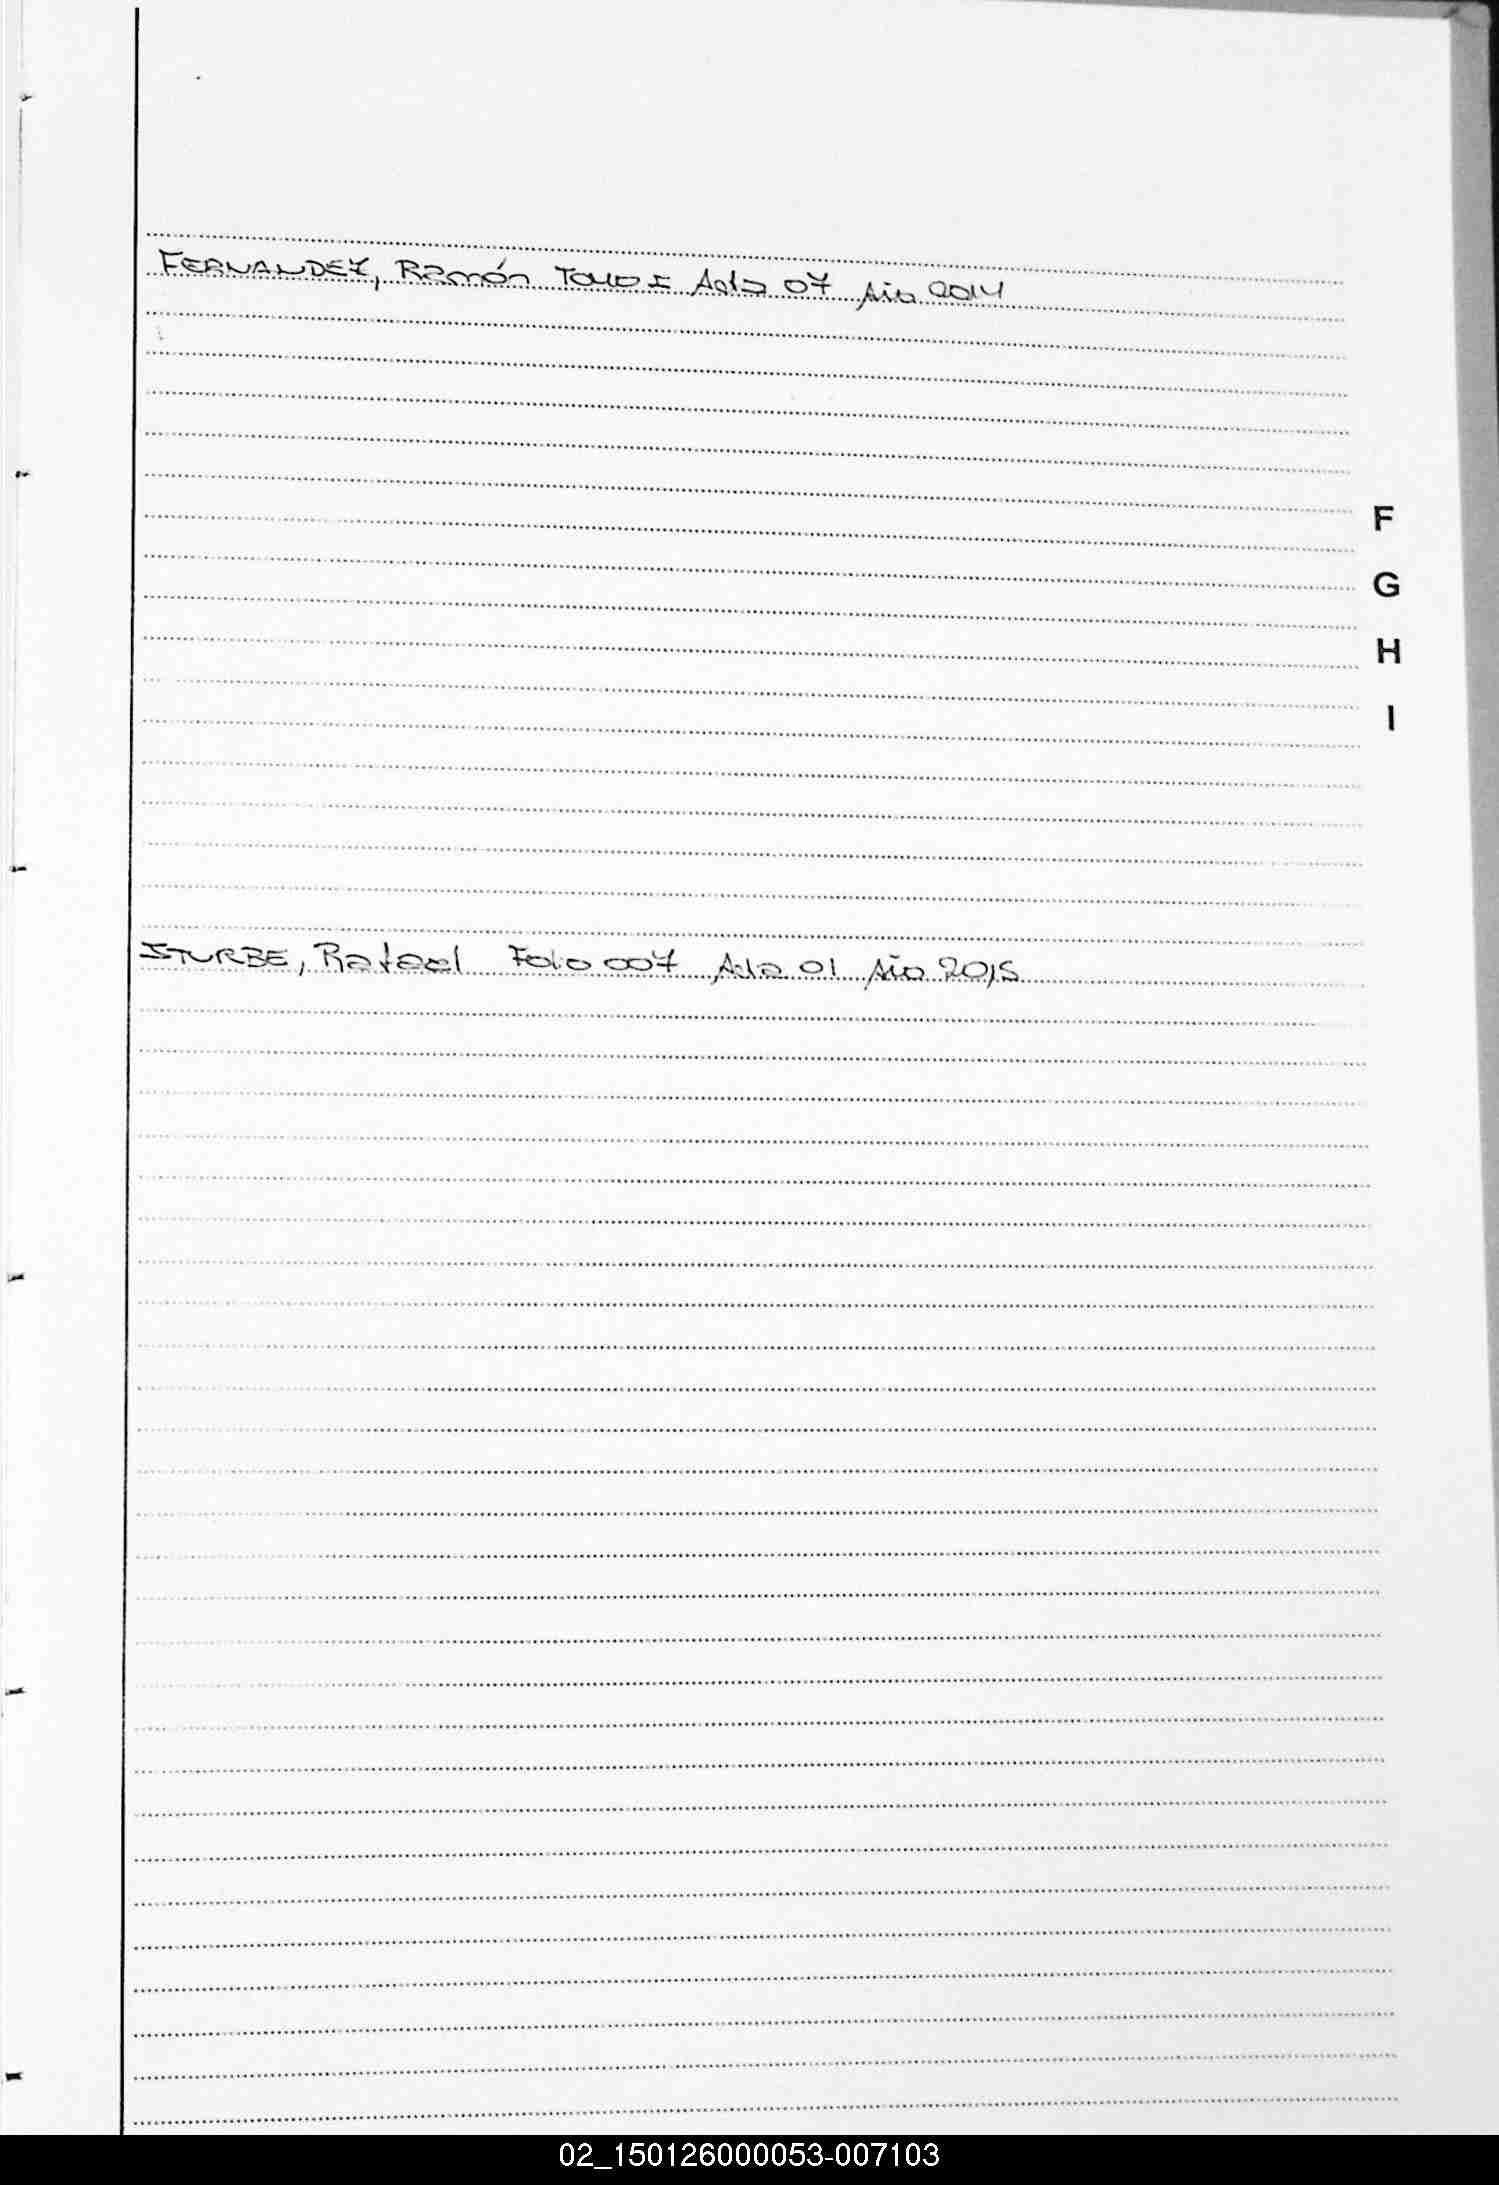 FERNANDEZ, Ramón Tomo I Acta 07 Año 2014
F
G
H
I
ITURBE, Rafael Folio 007 Acta 01 Año 2015
02_150126000053-007103